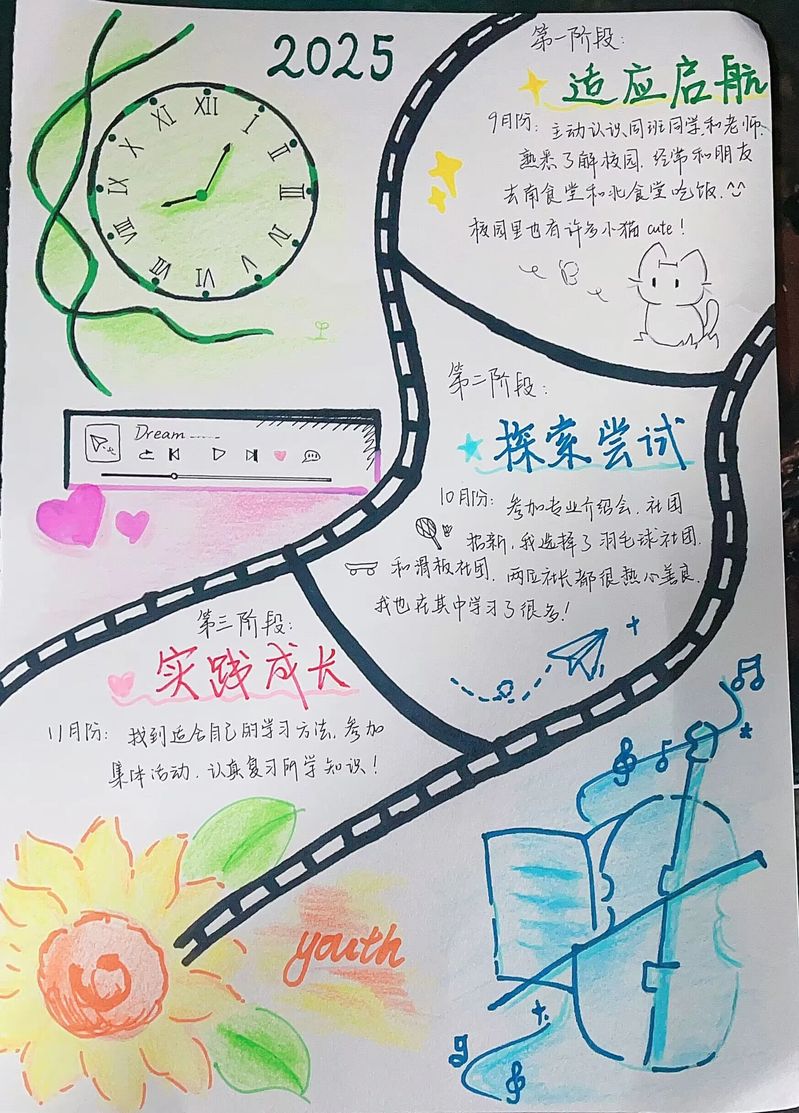 2025
XII
I
II
III
IIII
V
VI
VII
VIII
IX
X
XI
第一阶段:
适应启航
9月份: 主动认识同班同学和老师.
熟悉了解校园. 经常和朋友
去南食堂和北食堂吃饭.
校园里也有许多小猫 cute!
Dream
第二阶段:
探索尝试
10月份: 参加专业介绍会. 社团
招新, 我选择了羽毛球社团.
和滑板社团. 两位社长都很热心善良.
我也在其中学习了很多!
第三阶段:
实践成长
11月份: 找到适合自己的学习方法. 参加
集体活动. 认真复习所学知识!
youth